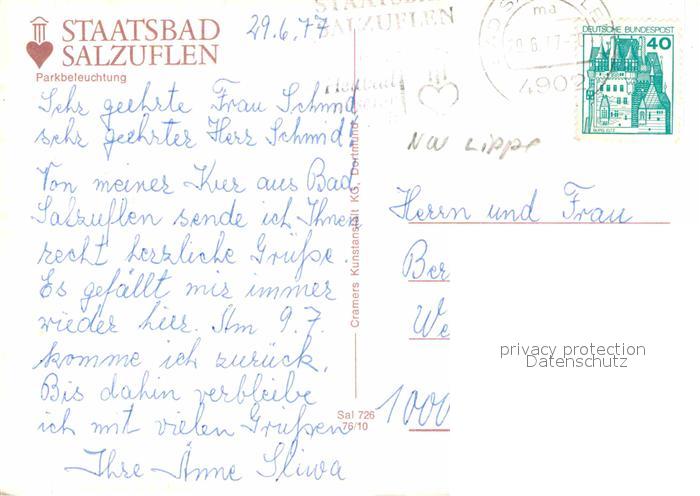 STAATSBAD
SALZUFLEN
Parkbeleuchtung
29.6.77
STAATSBAD
SALZUFLEN
4902
DEUTSCHE BUNDESPOST
40
BURG ELTZ
NW Lippe
Sehr geehrte Frau Schmidt
sehr geehrter Herr Schmidt,
Von meiner Kur aus Bad
Salzuflen sende ich Ihnen
recht herzliche Grüße.
Es gefällt mir immer
wieder hier. Am 9.7.
komme ich zurück.
Bis dahin verbleibe
ich mit vielen Grüßen
Ihre Änne Sliwa
Cramers Kunstanstalt KG, Dortmund
Sal 726
76/10
Herrn und Frau
Ber
We
1000
privacy protection
Datenschutz